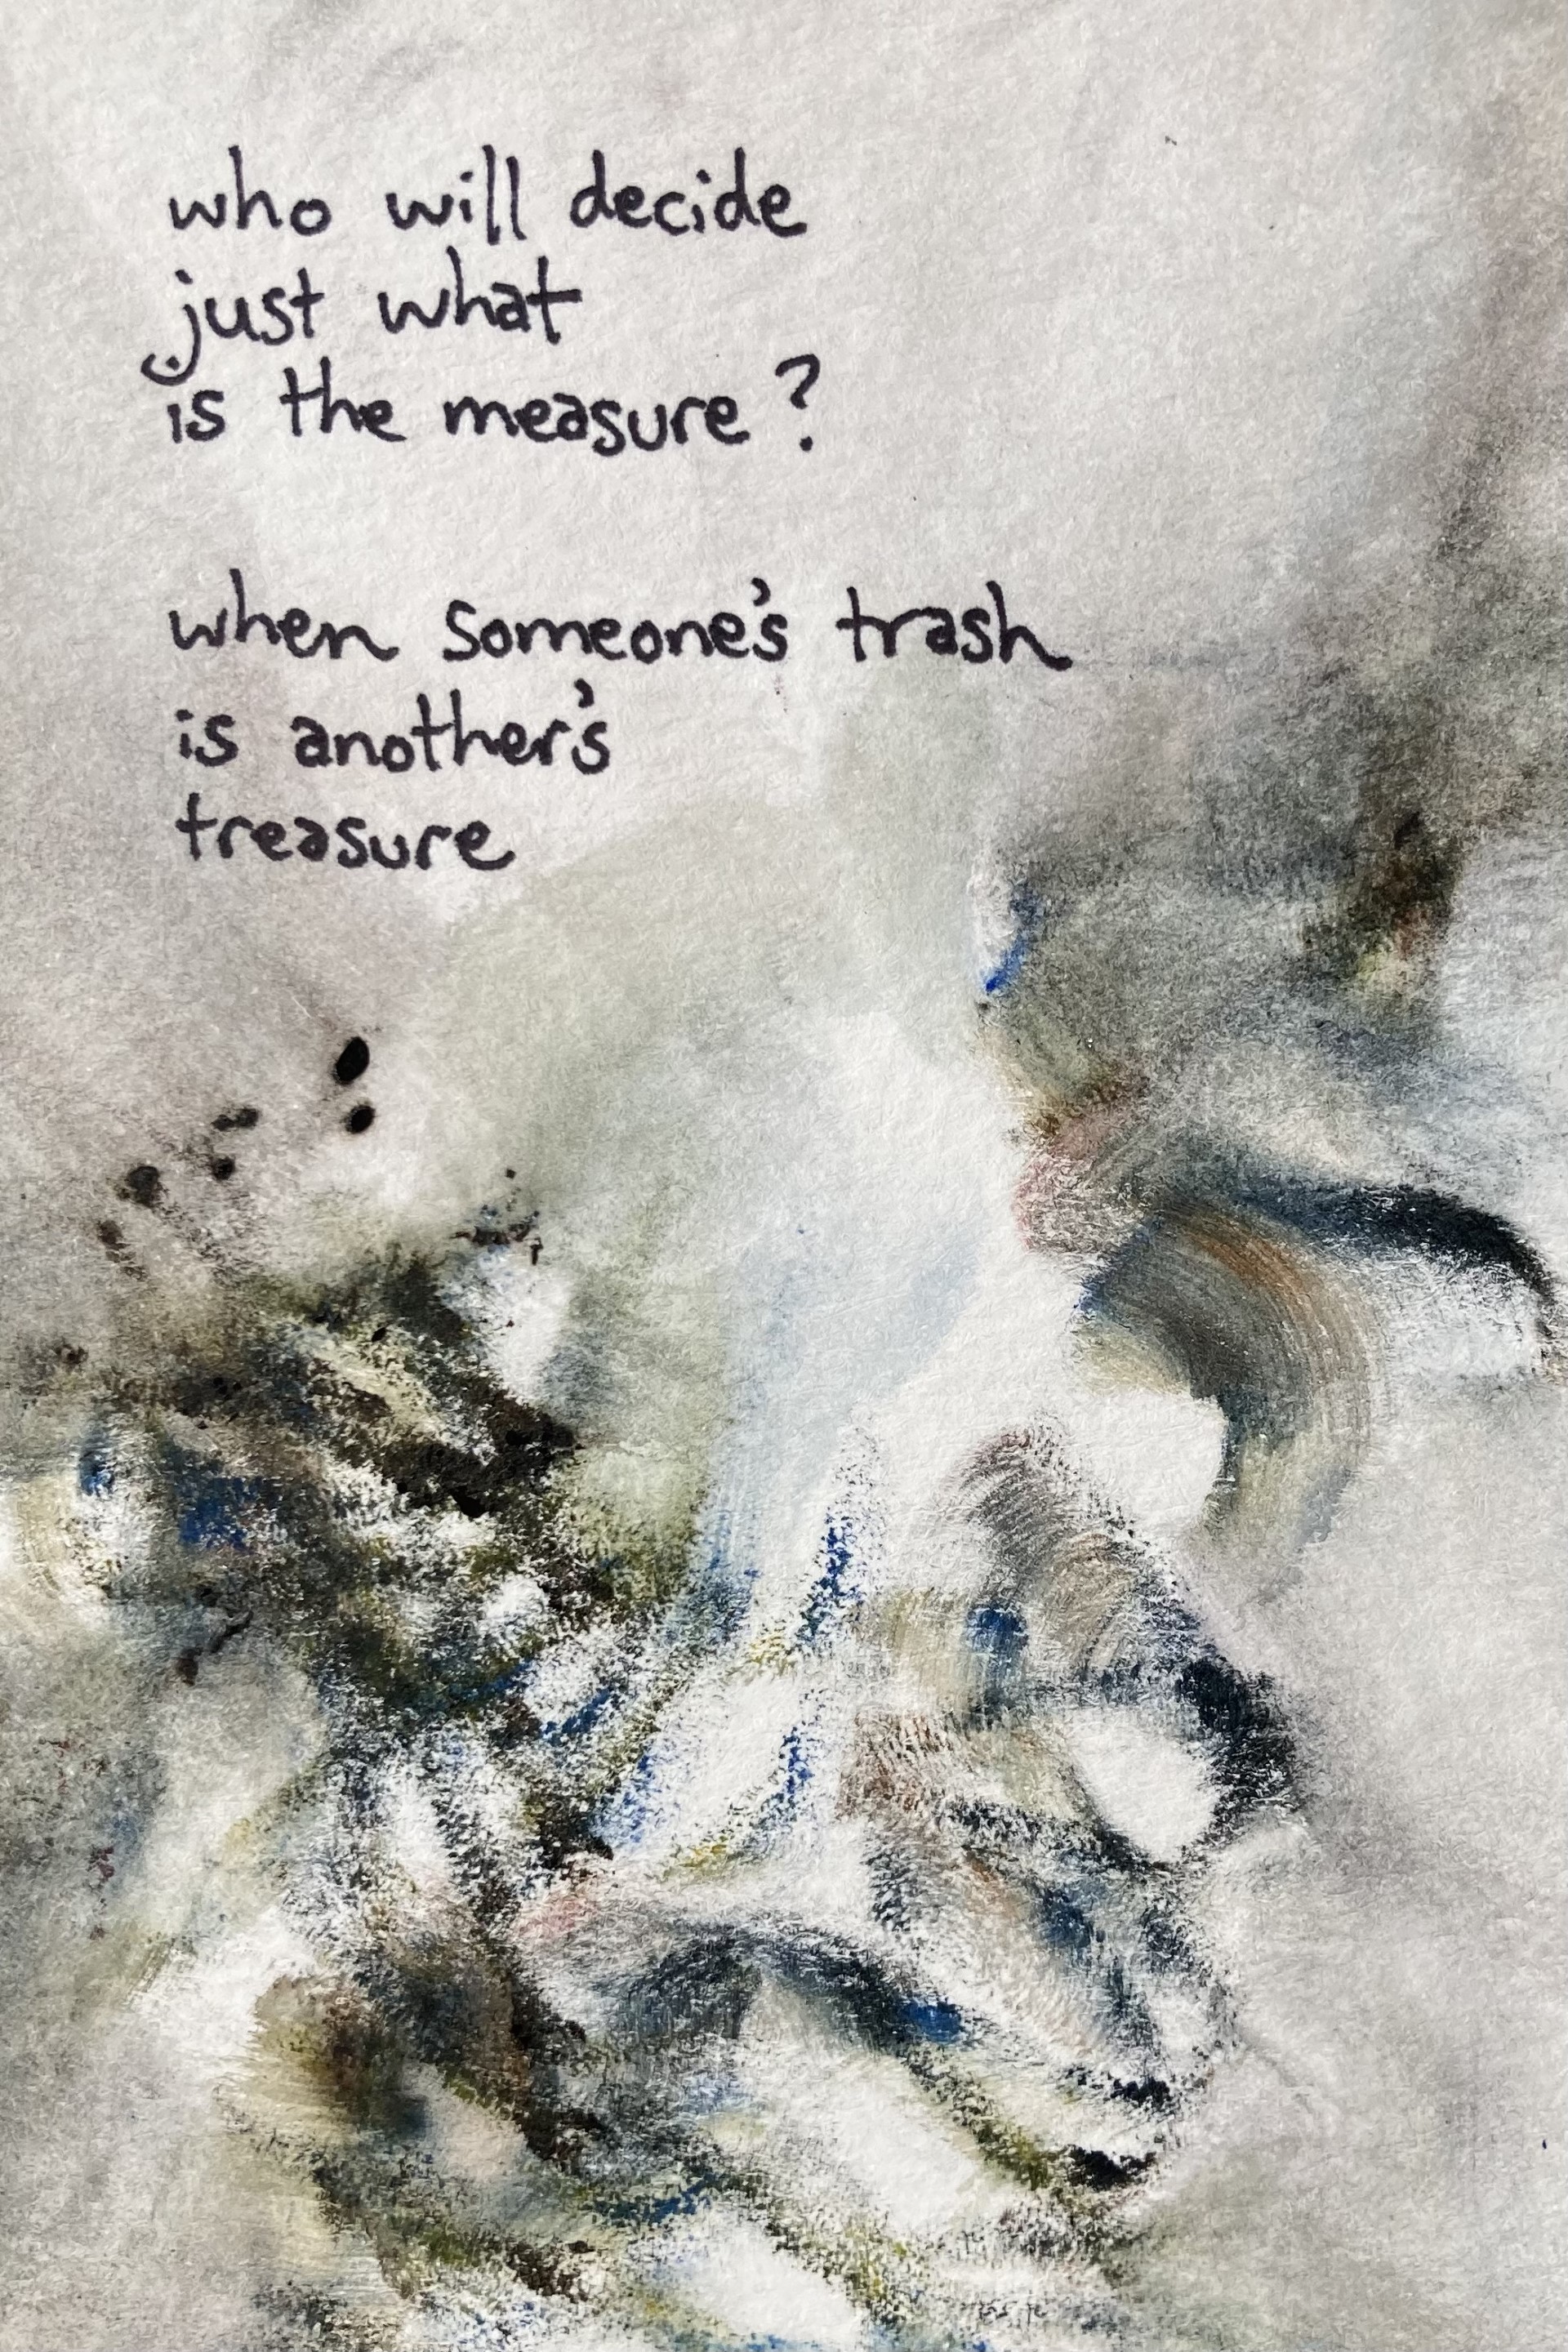 who will decide
just what
is the measure ?
when someone's trash
is another's
treasure